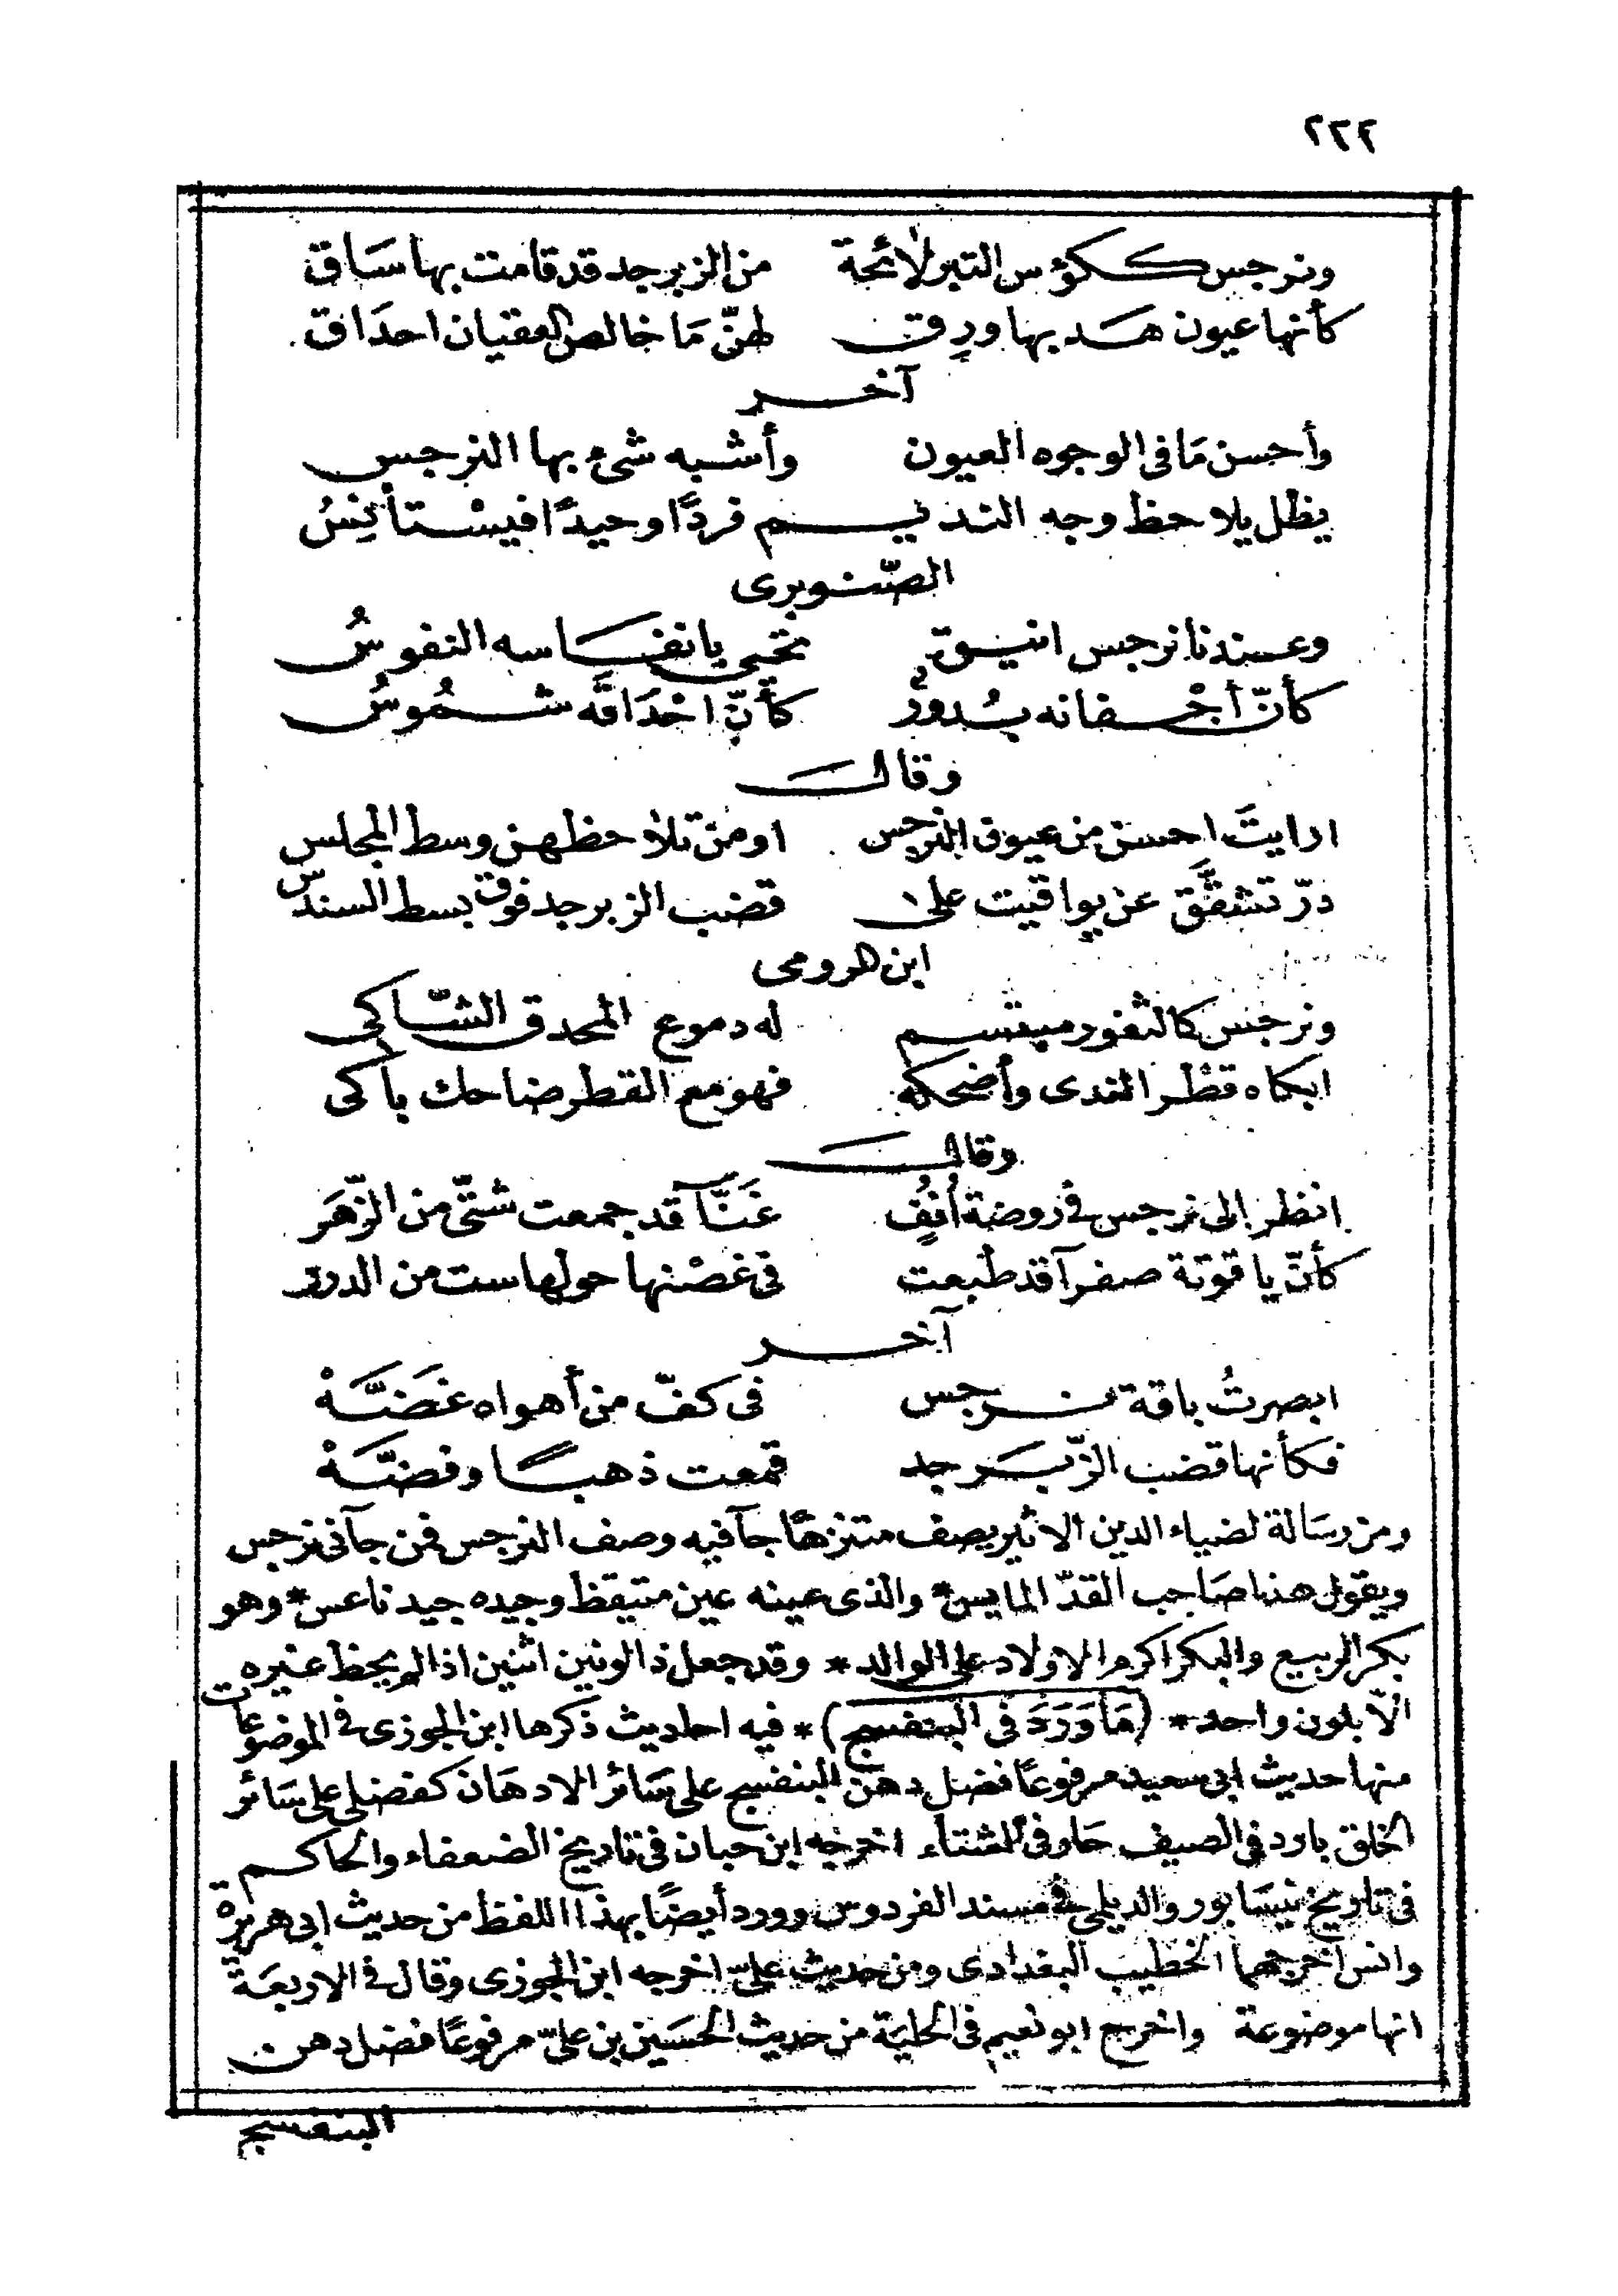 ٢٢٢
ونرجس ككؤس التبر لائحة من الزبرجد قد قامت بها ساق
كأنها عيون هدبها ورق لهنّ مَا خالص العقيان احدَاق
آخر
وأحسن مَا فى الوجوه العيون وأشبه شىء بها النرجس
يظل يلاحظ وجه النديم فردًا وحيدًا فيسْتأنِسُ
الصّنوبرى
وعندنا نرجس انيق تحيى بانفاسه النفوسُ
كأنّ أجْفانه بُدورٌ كأنّ احْدَاقَه شمُوسُ
وقال
ارايتَ احسن من عيون النرجس او من تلاحظهن وسط المجلس
درّ تشقّق عن يواقيت على قضب الزبرجد فوق بسط السندس
ابن هرومى
ونرجس كالثغور مبتسم له دموع المحدق الشّاكى
ابكاه قطْر الندى وأضحكه فهو مع القطر ضاحك باكى
وقال
انظر الى نرجس فى روضة أُنُفٍ غَنّآ قد جمعت شتّى من الزّهَر
كأنّ ياقوتة صفرآ قد طبعت فى غصْنها حولها ست من الدرر
آخر
ابصرتُ باقة نرجس فى كفّ من أهواه غضَّهْ
فكأنها قضب الزّبرجد قمعت ذهبًا وفضّهْ
ومن رسَالة لضياء الدين الاثير يصف متنزهًا جآ فيه وصف النرجس فمن جآنى نرجس
ويقول هذا صَاحب القدّ المايس * والذى عينه عين متيقظ وجيده جيد ناعس * وهو
بكر الربيع والبكر اكرم الاولاد على الوالد * وقد جعل ذا لونين اثنين اذا لم يحظ غيره
الّا بلون واحد * (مَا وَرَدَ فى البنفسج) * فيه احاديث ذكرها ابن الجوزى فى الموضوعات
منها حديث ابى سعيد مرفوعًا فضل دهن البنفسج على سَائر الادهَان كفضلى على سَائر
الخلق بارد فى الصيف حَار فى الشتاء اخرجه ابن حبان فى تاريخ الضعفاء والحاكم
فى تاريخ نيسَابور والديلمى فى مسند الفردوس وورد أيضًا بهذا اللفظ من حديث ابى هريرة
وانس اخرجهما الخطيب البغدادى ومن حديث علىّ اخرجه ابن الجوزى وقال فى الاربعَة
انها موضوعة واخرج ابو نعيم فى الحليَة من حديث الحسَين بن علىّ مرفوعًا فضل دهن
البنفسج